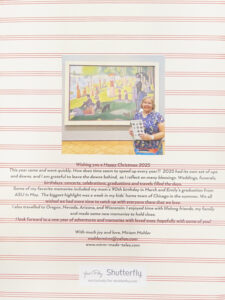 Wishing you a Happy Christmas 2025
This year came and went quickly. How does time seem to speed up every year?! 2025 had its own set of ups
and downs, and I am grateful to leave the downs behind, as I reflect on many blessings. Weddings, funerals,
birthdays, concerts, celebrations, graduations and travels filled the days.
Some of my favorite memories included my mom's 90th birthday in March and Emily's graduation from
ASU in May. The biggest highlight was a week in my kids' home town of Chicago in the summer. We all
wished we had more time to catch up with everyone there that we love.
I also travelled to Oregon, Nevada, Arizona, and Wisconsin. I enjoyed time with lifelong friends, my family
and made some new memories to hold close.
I look forward to a new year of adventures and memories with loved ones, hopefully with some of you!
With much joy and love, Miriam Mohler
Shutterfly